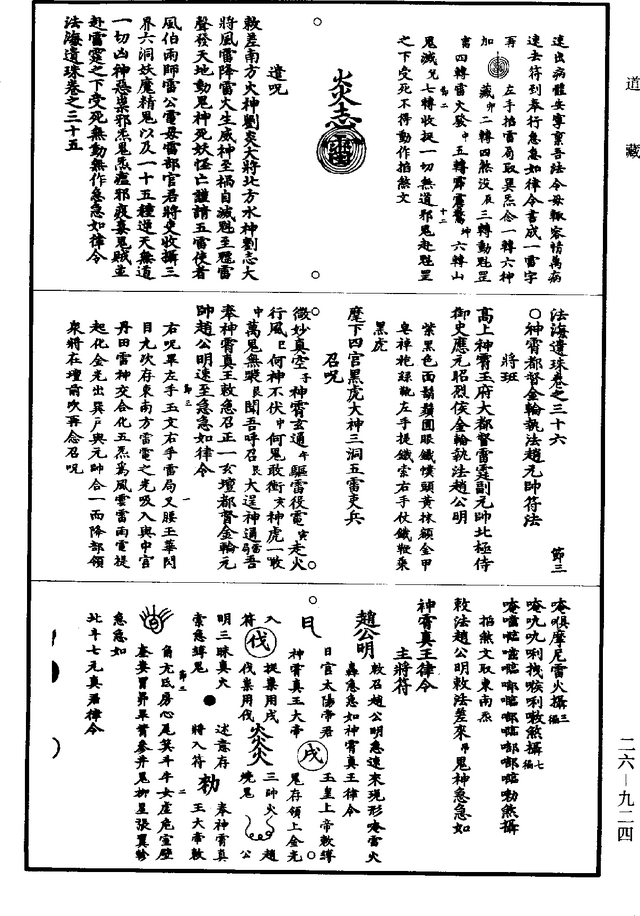 道藏
速出病體安寧稟吾法令毋輒容情萬病
速去符到奉行急急如律令書成一雷字
再 左手掐雷局取巽炁念一轉六神
加 藏卯二轉四煞沒辰三轉動魁罡
雷四轉雷火發中五轉霹靂驚坤六轉山
鬼滅兌七轉收捉一切無道邪鬼赴魁罡
之下受死不得動作掐煞文
遣呪
敕差南方火神劉炎大將北方水神劉志大
將風雷降雷火生威神至禍自滅魁至罡雷
聲發天地動鬼神死妖怪亡謹請五雷使者
風伯雨師雷公電母雷部官君將吏收攝三
界六洞妖魔精鬼以及一十五種逆天無道
一切凶神惡梟邪炁鬼炁瘟邪疫毒鬼賊並
赴雷霆之下受死無動無作急急如律令
法海遺珠卷之三十五
法海遺珠卷之三十六 節三
○神霄都督金輪執法趙元帥符法
將班
高上神霄玉府大都督雷霆副元帥北極侍
御史應元昭烈侯金輪執法趙公明
紫黑色面鬍鬚圓眼鐵幞頭黃抹額金甲
皂袍綠靴左手提鐵索右手仗鐵鞭乘
黑虎
麾下四官黑虎大神三洞五雷吏兵
召呪
微妙真空子神霄玄通午驅雷役電寅走火
行風巳何神不伏中何鬼敢衝亥神虎一噉
中萬鬼無蹤艮聞吾呼召艮大逞神通雷局吾
奉神霄真王敕急召正一玄壇都督金輪元
帥趙公明速至急急如律令
右呪畢左手玉文右手雷局又腰玉華閃
目九次存東南方雷電之光吸入與中宮
丹田雷神交合化五炁為風雲雷雨電提
起化金光出巽戶與元帥合一而降部領
衆將在壇前吹再念召呪
唵嗔摩尼雷火攝三攝
唵吭吭唎拽㗋唎噉煞攝七攝
掐煞文取東南炁
敕法趙公明敕法差來耳鬼神急急如
神霄真王律令
主將符
趙公明 敕召趙公明急速來現形唵雷火
轟急急如神霄真王律令
日 日宮太陽帝君 玉皇上帝敕縛
神霄真王大帝 戌 鬼存領上金光
入 捉祟用戌 三帥火 趙
符 伐 伐祟用伐 燒鬼 公
明三昧真火 述意存 奉神霄真
祟急縛鬼 將入符 敕 王大帝敕
角亢氐房心尾箕斗牛女虛危室壁
奎婁胃昴畢觜參井鬼柳星張翼軫
急急如
北斗七元真君律令
二六—九二四